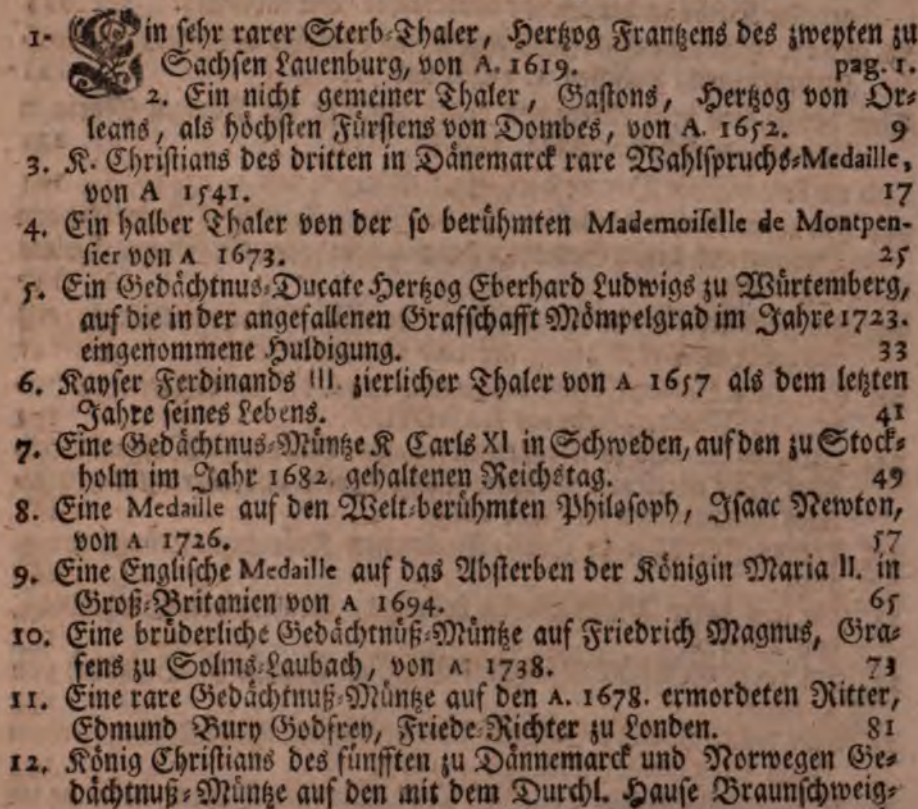 1. Ein sehr rarer Sterb-Thaler, Hertzog Frantzens des zweyten zu
Sachsen Lauenburg, von A. 1619. pag. 1.
2. Ein nicht gemeiner Thaler, Gastons, Hertzog von Or-
leans, als höchsten Fürstens von Dombes, von A. 1652. 9
3. K. Christians des dritten in Dänemarck rare Wahlspruchs-Medaille,
von A 1541. 17
4. Ein halber Thaler von der so berühmten Mademoiselle de Montpen-
sier von A 1673. 25
5. Ein Gedächtnus-Ducate Hertzog Eberhard Ludwigs zu Würtemberg,
auf die in der angefallenen Grafschafft Mömpelgrad im Jahre 1723.
eingenommene Huldigung. 33
6. Kayser Ferdinands III. zierlicher Thaler von A 1657 als dem letzten
Jahre seines Lebens. 41
7. Eine Gedächtnus-Müntze K Carls XI. in Schweden, auf den zu Stock-
holm im Jahr 1682. gehaltenen Reichstag. 49
8. Eine Medaille auf den Welt-berühmten Philosoph, Isaac Newton,
von A 1726. 57
9. Eine Englische Medaille auf das Absterben der Königin Maria II. in
Groß-Britanien von A 1694. 65
10. Eine brüderliche Gedächtnüß-Müntze auf Friedrich Magnus, Gra-
fens zu Solms-Laubach, von A 1738. 73
11. Eine rare Gedächtnuß-Müntze auf den A. 1678. ermordeten Ritter,
Edmund Bury Godfrey, Friede-Richter zu Londen. 81
12. König Christians des fünfften zu Dännemarck und Norwegen Ge-
dächtnuß-Müntze auf den mit dem Durchl. Hause Braunschweig-